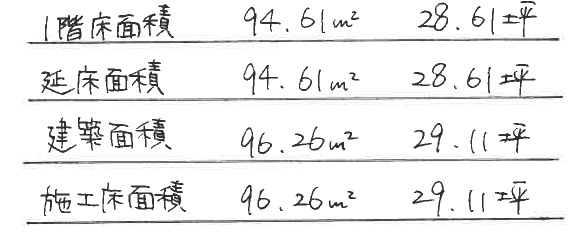 1階床面積 94.61m² 28.61坪
延床面積 94.61m² 28.61坪
建築面積 96.26m² 29.11坪
施工床面積 96.26m² 29.11坪